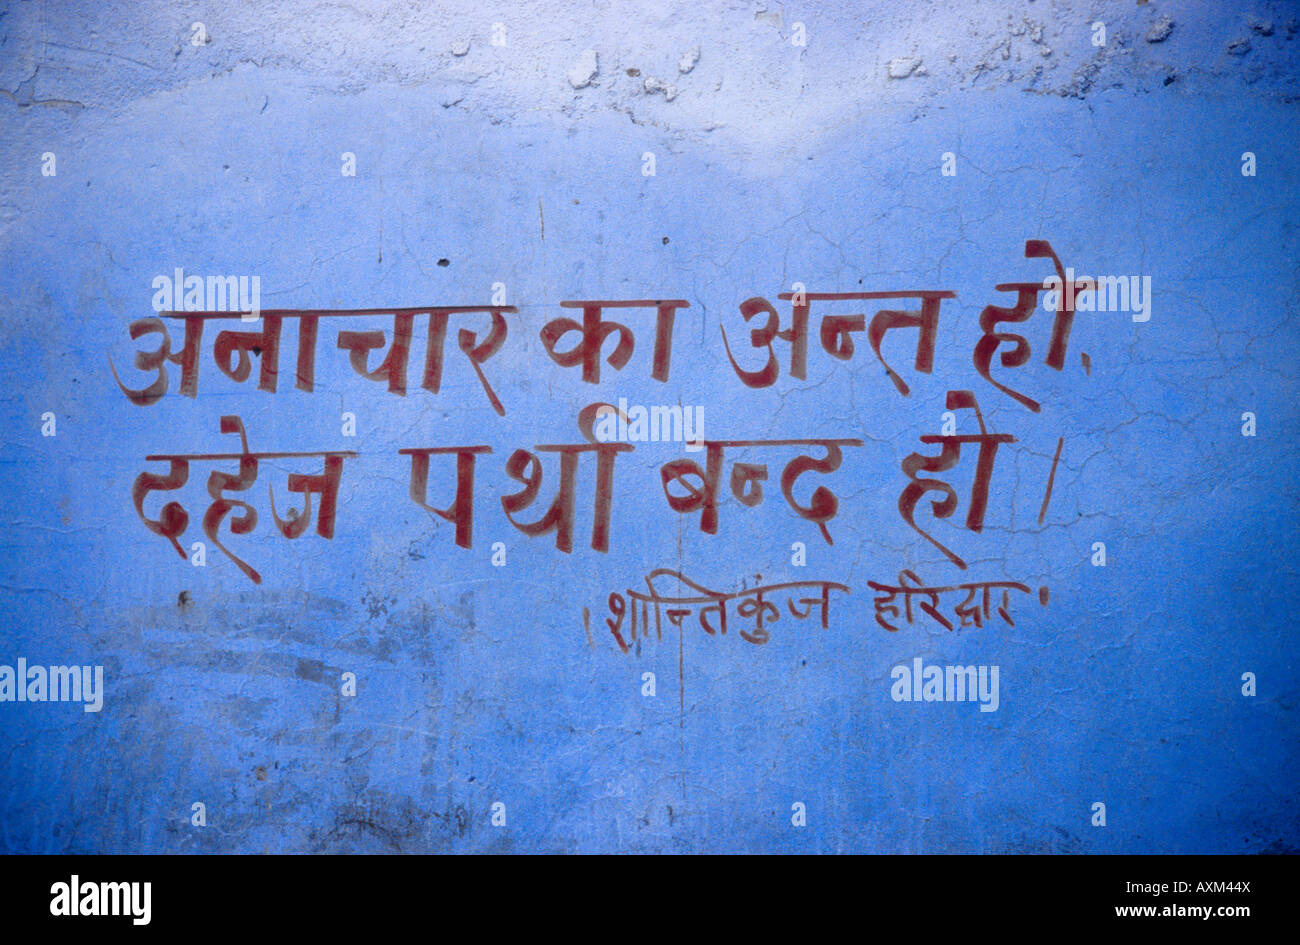 अनाचार का अन्त हो,
दहेज पर्था बन्द हो।
।शान्तिकुंज हरिद्वार।
alamy
Image ID: AXM44X
www.alamy.com